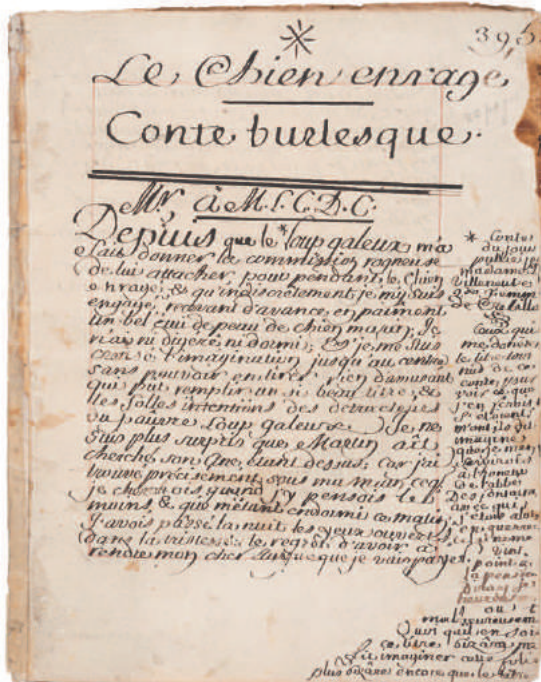 *
395
Le Chien enragé
Conte burlesque.
Mr à M.L.C.D.C.
Depuis que le * loup galeux, m'a
fait donner la commission rogneuse
de lui attacher pour pendant, le Chien
enragé, & qu'indiscrètement je m'y suis
engagé, recevant d'avance, en paiment
un bel étui de peau de chien marin, Je
n'ai ni digéré ni dormi; & je me suis
creusé l'imagination jusqu'au centre
sans pouvoir en tirer rien d'amusant
qui put remplir un si beau titre, &
les folles intentions des detracteurs
du pauvre Loup galeux. Je ne
suis plus surpris que Martin ait
cherché son âne, étant dessus; car j'ai
trouvé précisément sous ma main, ce que
je cherchois, quand j'y pensois le
moins, & que m'étant endormi ce matin
J'avois passé la nuit les yeux ouverts
dans la tristesse & le regret d'avoir à
rendre mon cher que je vai
* Contes
du jour
publiés
madame
Villeneuve
Ceux qui
me
le titre
de ce
conte, pour
voir ce que
j'en
m'ont
imaginé
que je
à l'honneur
de l'abbé
Des fontaines
avec qui
j'étois alors
en guerre
point à
la
ou
malheureusem
Quoi qu'il en soit
ce titre bizare me
fit imaginer cette folie
plus bizare encore que le titre